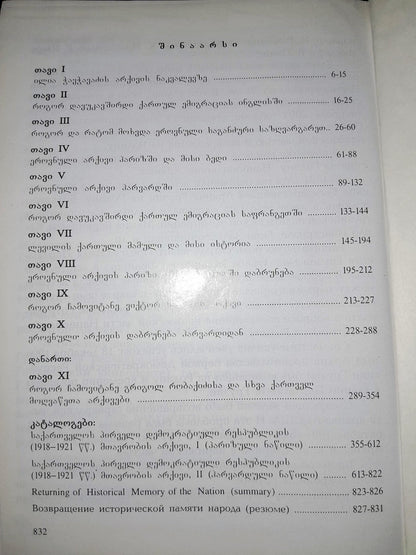 შინაარსი
თავი I
ილია ჭავჭავაძის არქივის ნაკვალევზე 6-15
თავი II
როგორ დავუკავშირდი ქართულ ემიგრაციას ინგლისში 16-25
თავი III
როგორ და რატომ მოხვდა ეროვნული საგანძური საზღვარგარეთ.. 26-60
თავი IV
ეროვნული არქივი პარიზში და მისი ბედი 61-88
თავი V
ეროვნული არქივი ჰარვარდში 89-132
თავი VI
როგორ დავუკავშირდი ქართულ ემიგრაციას საფრანგეთში 133-144
თავი VII
ლევილის ქართული მამული და მისი ისტორია 145-194
თავი VIII
ეროვნული არქივის დაბრუნება 195-212
თავი IX
როგორ ჩამოვიტანე ვიქტორ არქივი 213-227
თავი X
ეროვნული არქივის დაბრუნება ჰარვარდიდან 228-288
დანართი:
თავი XI
როგორ ჩამოვიტანე გრიგოლ რობაქიძისა და სხვა ქართველ
მოღვაწეთა არქივები 289-354
კატალოგები:
საქართველოს პირველი დემოკრატიული რესპუბლიკის
(1918–1921 წწ.) მთავრობის არქივი, I (პარიზული ნაწილი) 355-612
საქართველოს პირველი დემოკრატიული რესპუბლიკის
(1918–1921 წწ.) მთავრობის არქივი, II (ჰარვარდული ნაწილი) 613-822
Returning of Historical Memory of the Nation (summary) 823-826
Возвращение исторической памяти народа (резюме) 827-831
832